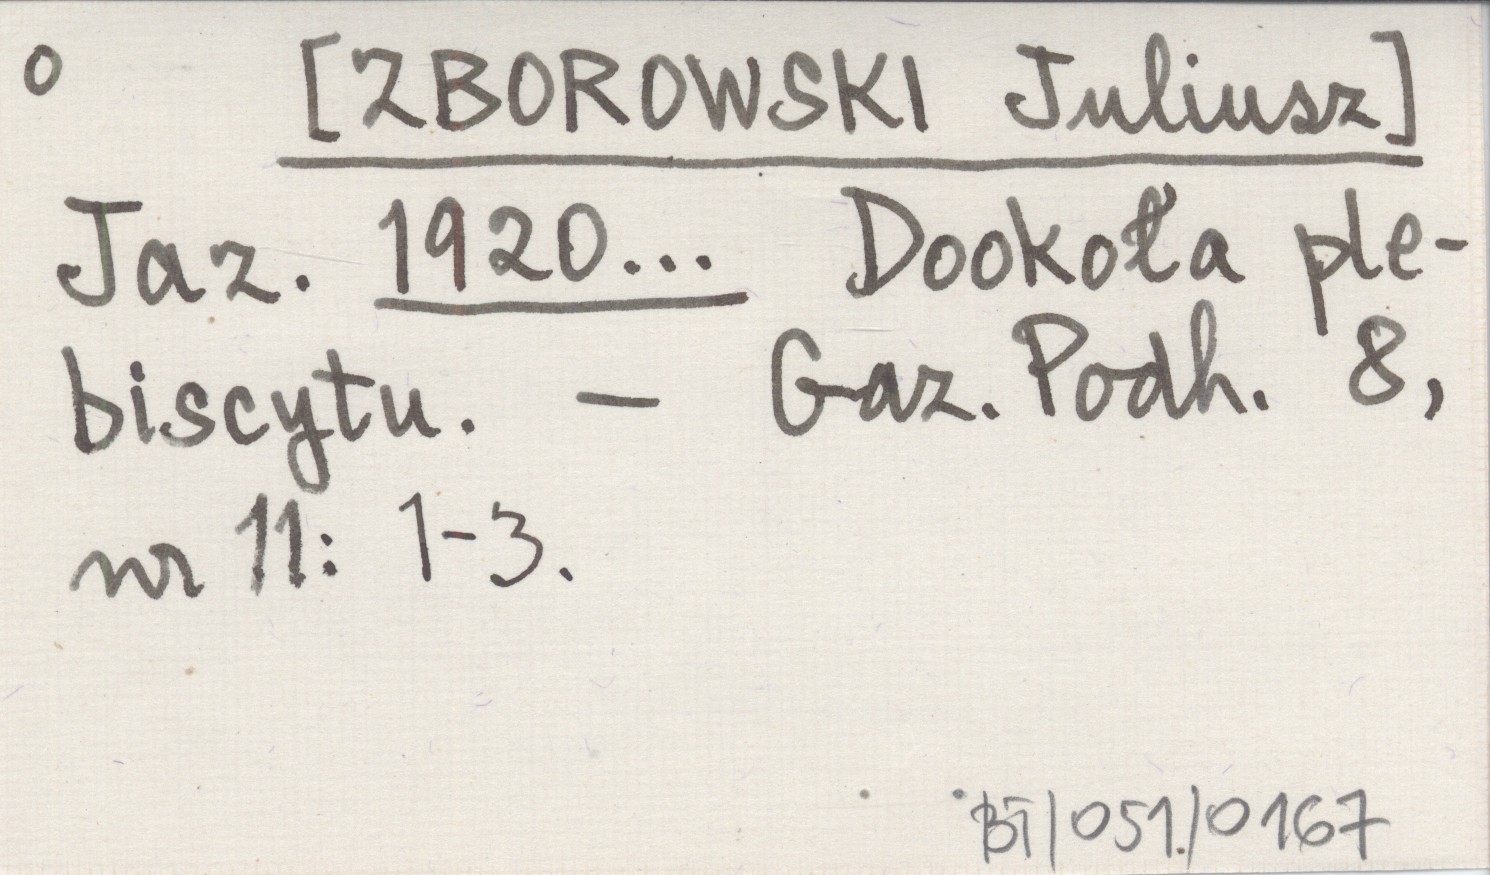 o [ZBOROWSKI Juliusz]
Jaz. 1920... Dookoła ple-
biscytu. — Gaz. Podh. 8,
nr 11: 1-3.
BT/051/0167